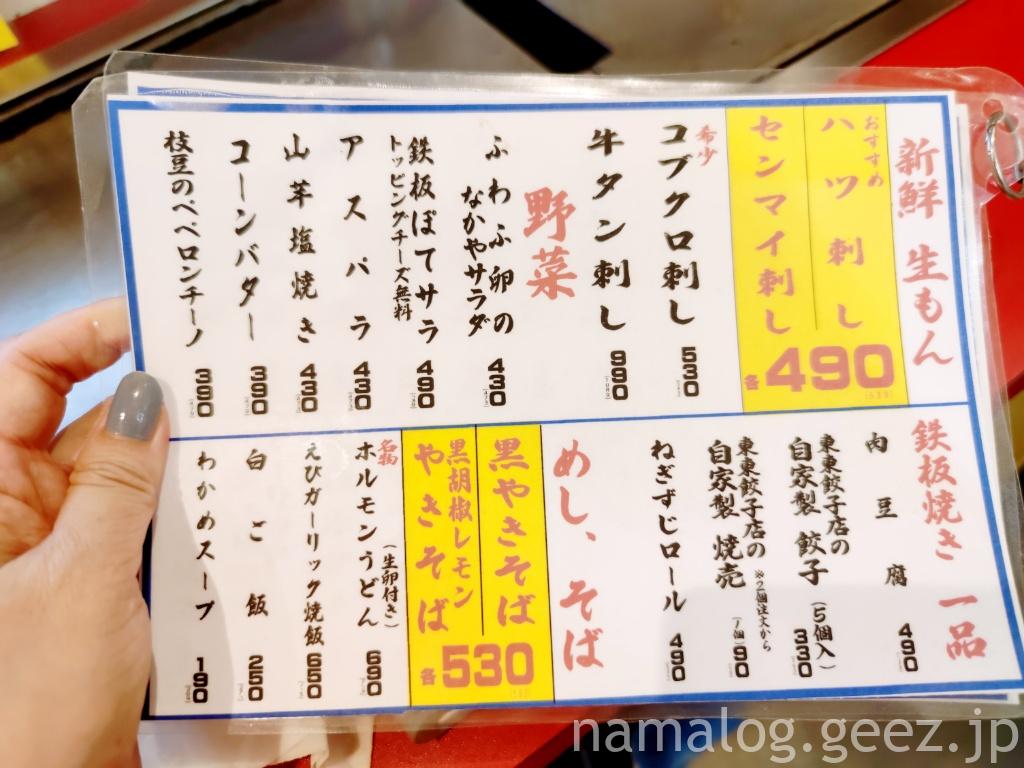 新鮮 生もん
おすすめ
ハツ刺し
センマイ刺し
各490
希少
コブクロ刺し
530
牛タン刺し
990
野菜
ふわふわ卵の
なかやサラダ
430
鉄板ぽてサラ
トッピングチーズ無料
490
アスパラ
430
山芋塩焼き
430
コーンバター
390
枝豆のペペロンチーノ
390
鉄板焼き 一品
肉豆腐
490
東東餃子店の
自家製 餃子
(5個入)
330
東東餃子店の
自家製 焼売
※2個注文から
(1個)90
ねぎずじロール
490
めし、そば
黒やきそば
黒胡椒レモン
やきそば
各530
名物
ホルモンうどん
(生卵付き)
690
えびガーリック焼飯
650
白ご飯
250
わかめスープ
190
namalog.geez.jp